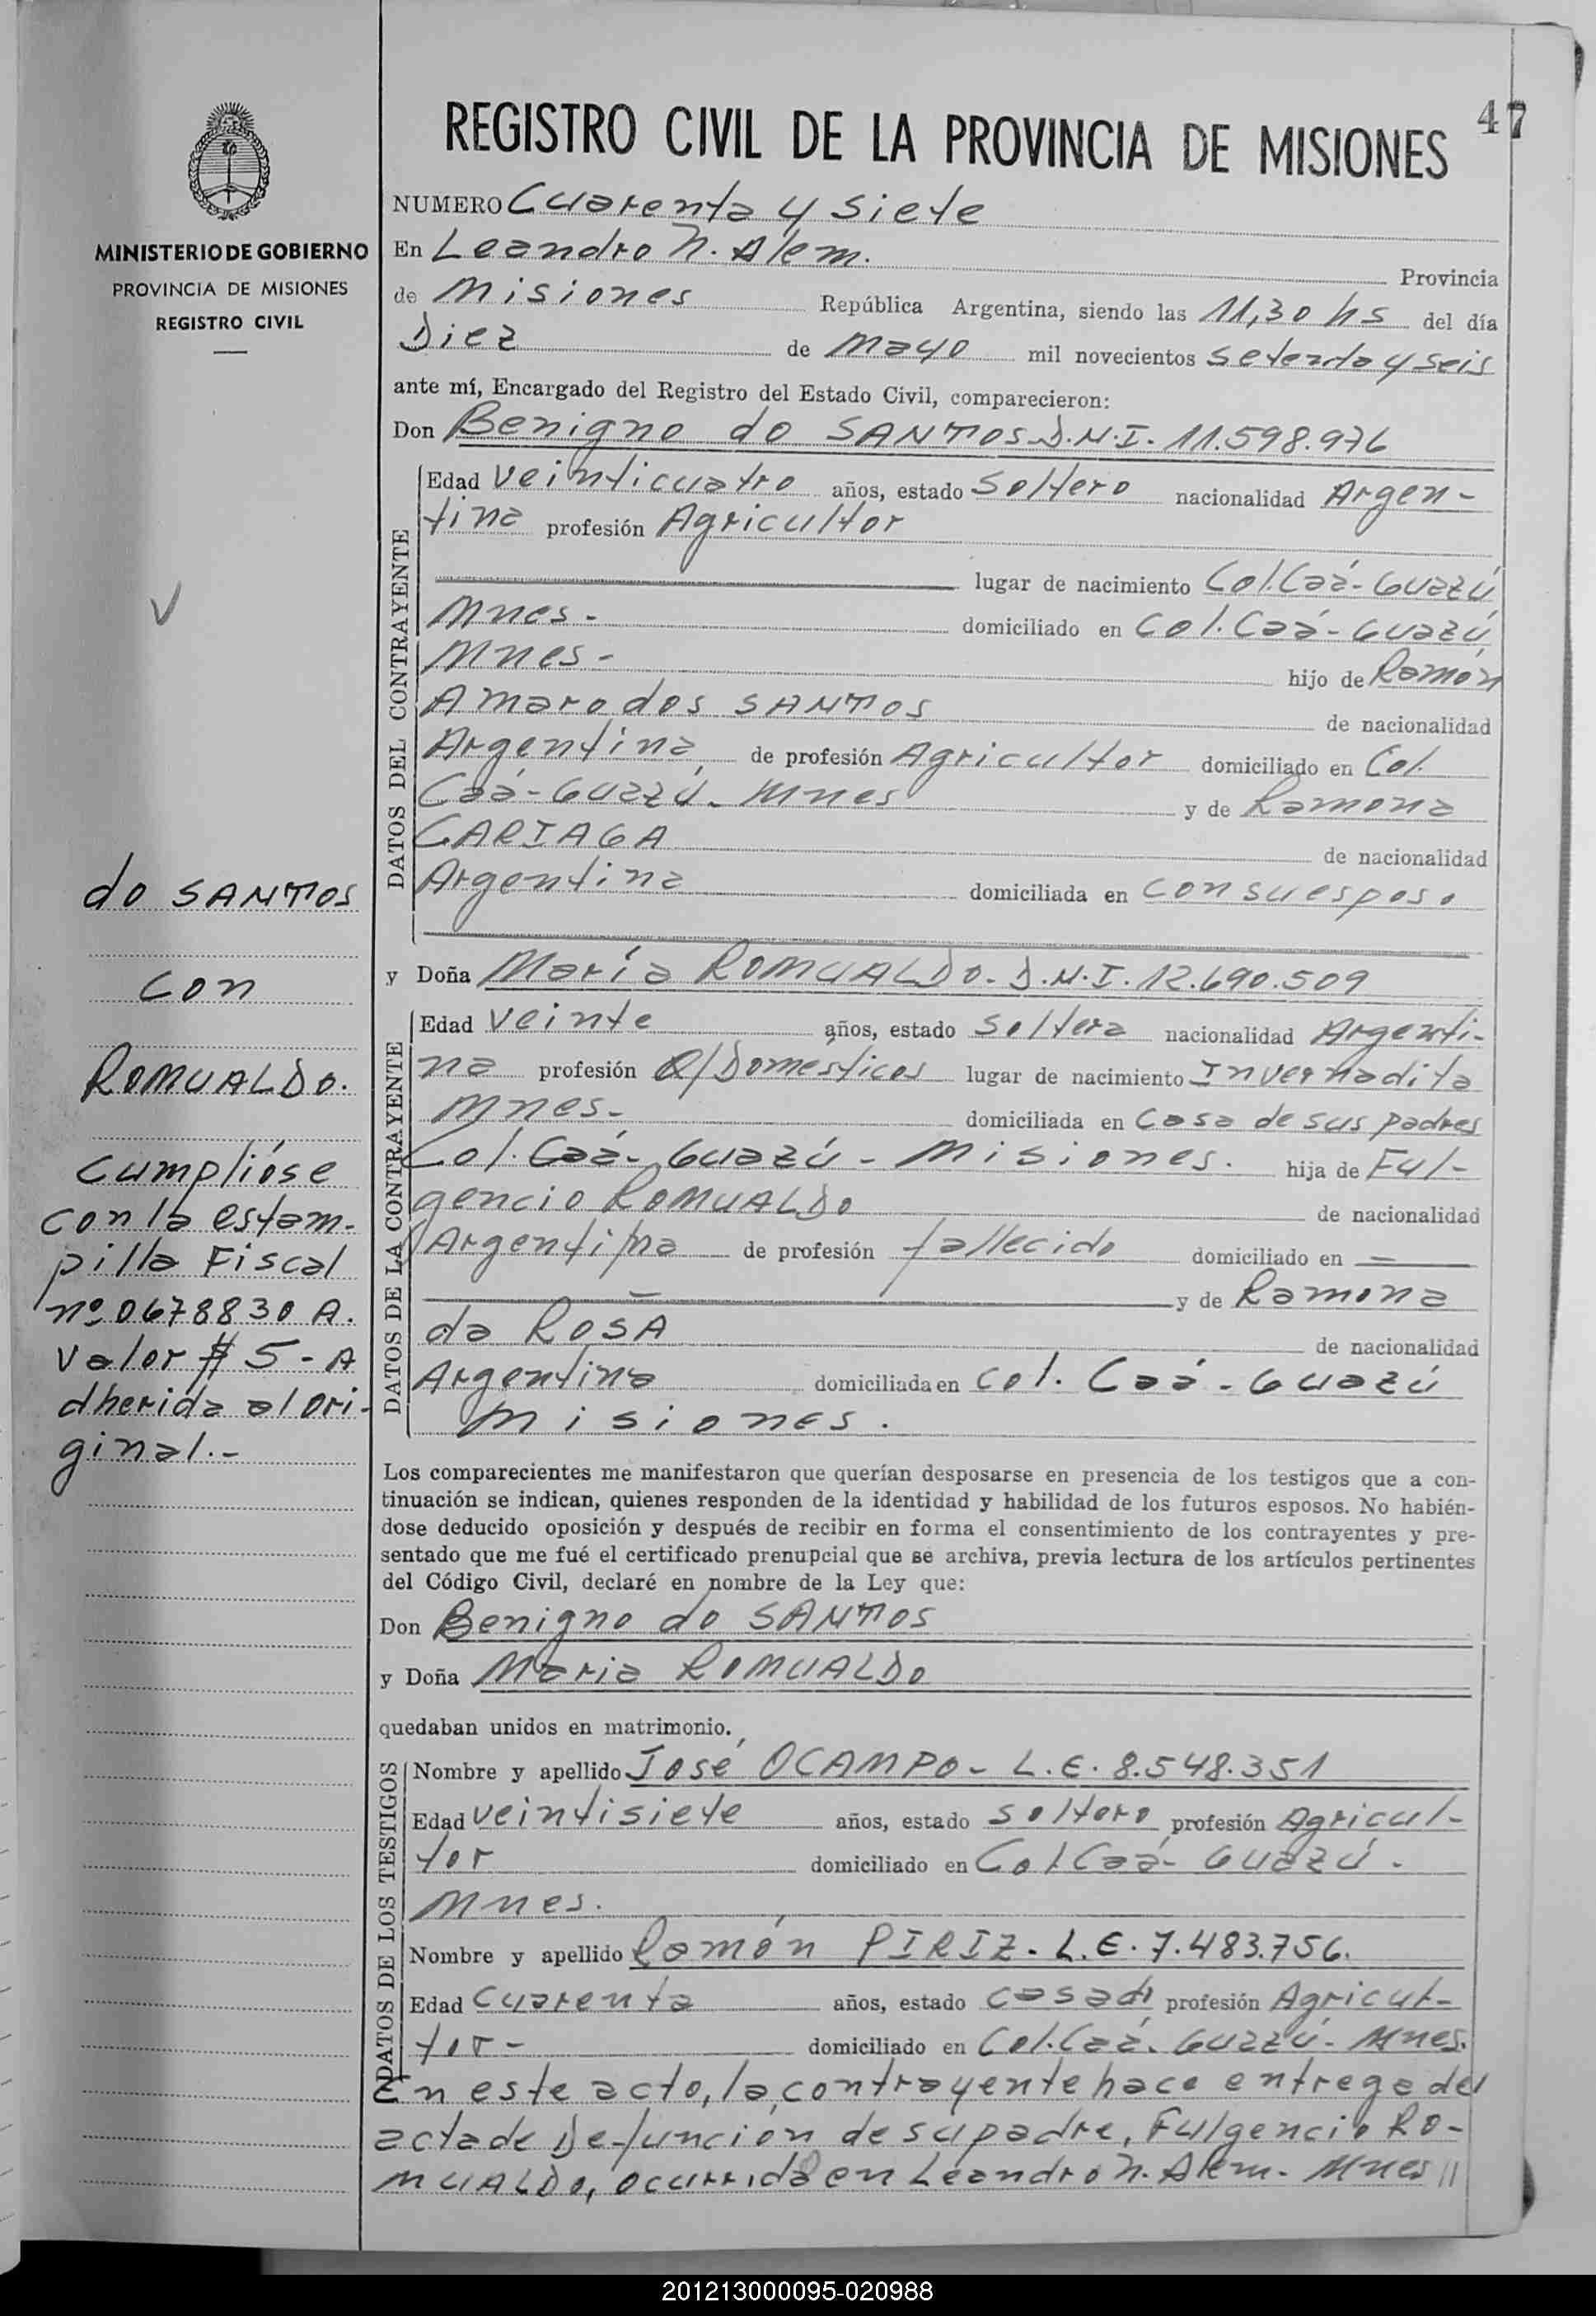 47
REGISTRO CIVIL DE LA PROVINCIA DE MISIONES
MINISTERIO DE GOBIERNO
PROVINCIA DE MISIONES
REGISTRO CIVIL
NUMERO Cuarenta y siete
En Leandro N. Alem. Provincia
de Misiones República Argentina, siendo las 11,30 hs del día
Diez de Mayo mil novecientos setenta y seis
ante mí, Encargado del Registro del Estado Civil, comparecieron:
Don Benigno do SANTOS D.N.I. 11.598.976
DATOS DEL CONTRAYENTE
Edad veinticuatro años, estado Soltero nacionalidad Argen-
tina profesión Agricultor
lugar de nacimiento Col. Caá-Guazú
Mnes- domiciliado en Col. Caá-Guazú
Mnes- hijo de Ramón
Amaro dos SANTOS de nacionalidad
Argentina de profesión Agricultor domiciliado en Col.
Caá-Guazú-Mnes y de Ramona
CARIAGA de nacionalidad
Argentina domiciliada en con su esposo
y Doña María ROMUALDO. D.N.I. 12.690.509
DATOS DE LA CONTRAYENTE
Edad veinte años, estado Soltera nacionalidad Argenti-
na profesión Q/Domésticos lugar de nacimiento Invernadita
Mnes- domiciliada en Casa de sus padres
Col. Caá-Guazú- Misiones. hija de Ful-
gencio ROMUALDO de nacionalidad
Argentina de profesión fallecido domiciliado en —
y de Ramona
da ROSA de nacionalidad
Argentina domiciliada en Col. Caá-Guazú
Misiones.
Los comparecientes me manifestaron que querían desposarse en presencia de los testigos que a con-
tinuación se indican, quienes responden de la identidad y habilidad de los futuros esposos. No habién-
dose deducido oposición y después de recibir en forma el consentimiento de los contrayentes y pre-
sentado que me fué el certificado prenupcial que se archiva, previa lectura de los artículos pertinentes
del Código Civil, declaré en nombre de la Ley que:
Don Benigno do SANTOS
y Doña Maria ROMUALDO
quedaban unidos en matrimonio.
DATOS DE LOS TESTIGOS
Nombre y apellido José OCAMPO- L.E. 8.548.351
Edad veintisiete años, estado soltero profesión Agricul-
tor domiciliado en Col Caá-Guazú.
Mnes.
Nombre y apellido Ramón PIRIZ. L.E. 7.483.756.
Edad Cuarenta años, estado casado profesión Agricul-
tor- domiciliado en Col. Caá. Guazú- Mnes.
En este acto, la contrayente hace entrega del
acta de Defunción de su padre, Fulgencio RO-
MUALDO, ocurrida en Leandro N. Alem. Mnes //
do SANTOS
con
ROMUALDO.
Cumplióse
con la estam-
pilla Fiscal
nº 0678830 A.
Valor $ 5- A
dherida al ori-
ginal.-
201213000095-020988